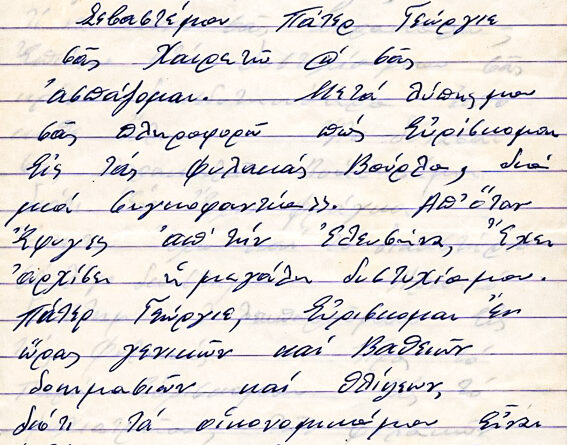 Σεβαστέμου Πάτερ Γεώργιε
σᾶς Χαιρετῶ @ σᾶς
ἀσπάζομαι. Μετά λύπης μου
σᾶς πληροφορῶ πώς Εὑρίσκομαι
Εἰς τάς φυλακάς Βούρλα, διά
μιά συγκοφαντία. Ἀπ' ὅταν
Ἔφυγες ἀπ' τήν Ἐλευσῖνα, Ἔχει
ἀρχίσει ἡ μεγάλη δυστυχία μου.
Πάτερ Γεώργιε, Εὑρίσκομαι Ἐν
ὥρας γενικῶν καί Βαθειῶν
δοκιμασιῶν καί θλίψεων,
διότι τά οἰκονομικά μου Εἶναι